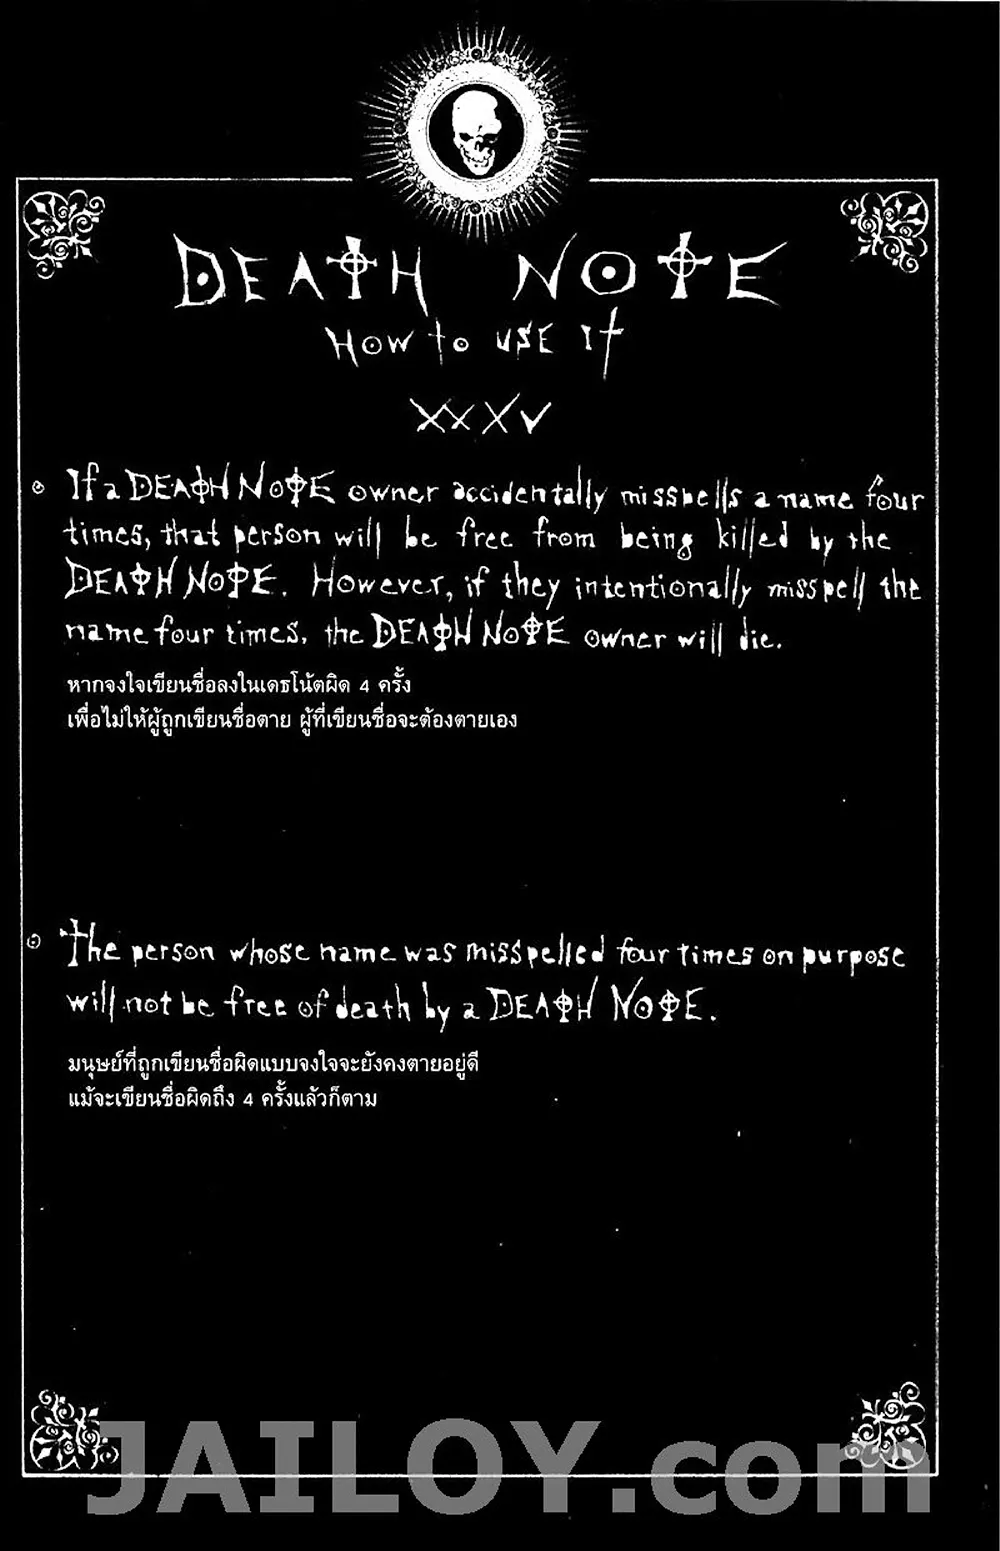 DEATH NOTE
HOW to USE It
XXXV
If a DEATH NOTE owner accidentally misspells a name four
times, that person will be free from being killed by the
DEATH NOTE. However, if they intentionally misspell the
name four times, the DEATH NOTE owner will die.
หากจงใจเขียนชื่อลงในเดธโน้ตผิด 4 ครั้ง
เพื่อไม่ให้ผู้ถูกเขียนชื่อตาย ผู้ที่เขียนชื่อจะต้องตายเอง
The person whose name was misspelled four times on purpose
will not be free of death by a DEATH NOTE.
มนุษย์ที่ถูกเขียนชื่อผิดแบบจงใจจะยังคงตายอยู่ดี
แม้จะเขียนชื่อผิดถึง 4 ครั้งแล้วก็ตาม
JAILOY.com